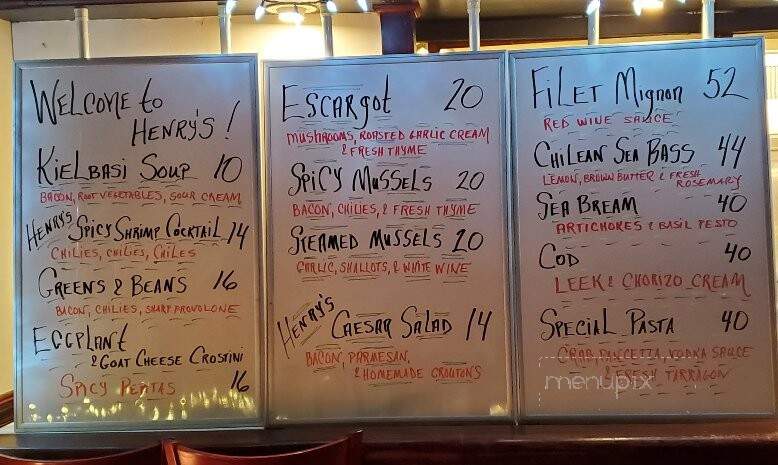 WELCOME to
HENRY'S!
KIELBASI SOUP 10
BACON, ROOT VEGETABLES, SOUR CREAM
HENRY'S SPICY SHRIMP COCKTAIL 14
CHILIES, CHILIES, CHILES
GREENS & BEANS 16
BACON, CHILIES, SHARP PROVOLONE
EGGPLANT
& GOAT CHEESE CROSTINI
SPICY PEPITAS 16
ESCARGOT 20
MUSHROOMS, ROASTED GARLIC CREAM
& FRESH THYME
SPICY MUSSELS 20
BACON, CHILIES, & FRESH THYME
STEAMED MUSSELS 20
GARLIC, SHALLOTS, & WHITE WINE
HENRY'S CAESAR SALAD 14
BACON, PARMESAN,
& HOMEMADE CROUTONS
FILET MIGNON 52
RED WINE SAUCE
CHILEAN SEA BASS 44
LEMON, BROWN BUTTER & FRESH
ROSEMARY
SEA BREAM 40
ARTICHOKES & BASIL PESTO
COD 40
LEEK & CHORIZO CREAM
SPECIAL PASTA 40
CRAB, PANCETTA, VODKA SAUCE
& FRESH TARRAGON
menupix